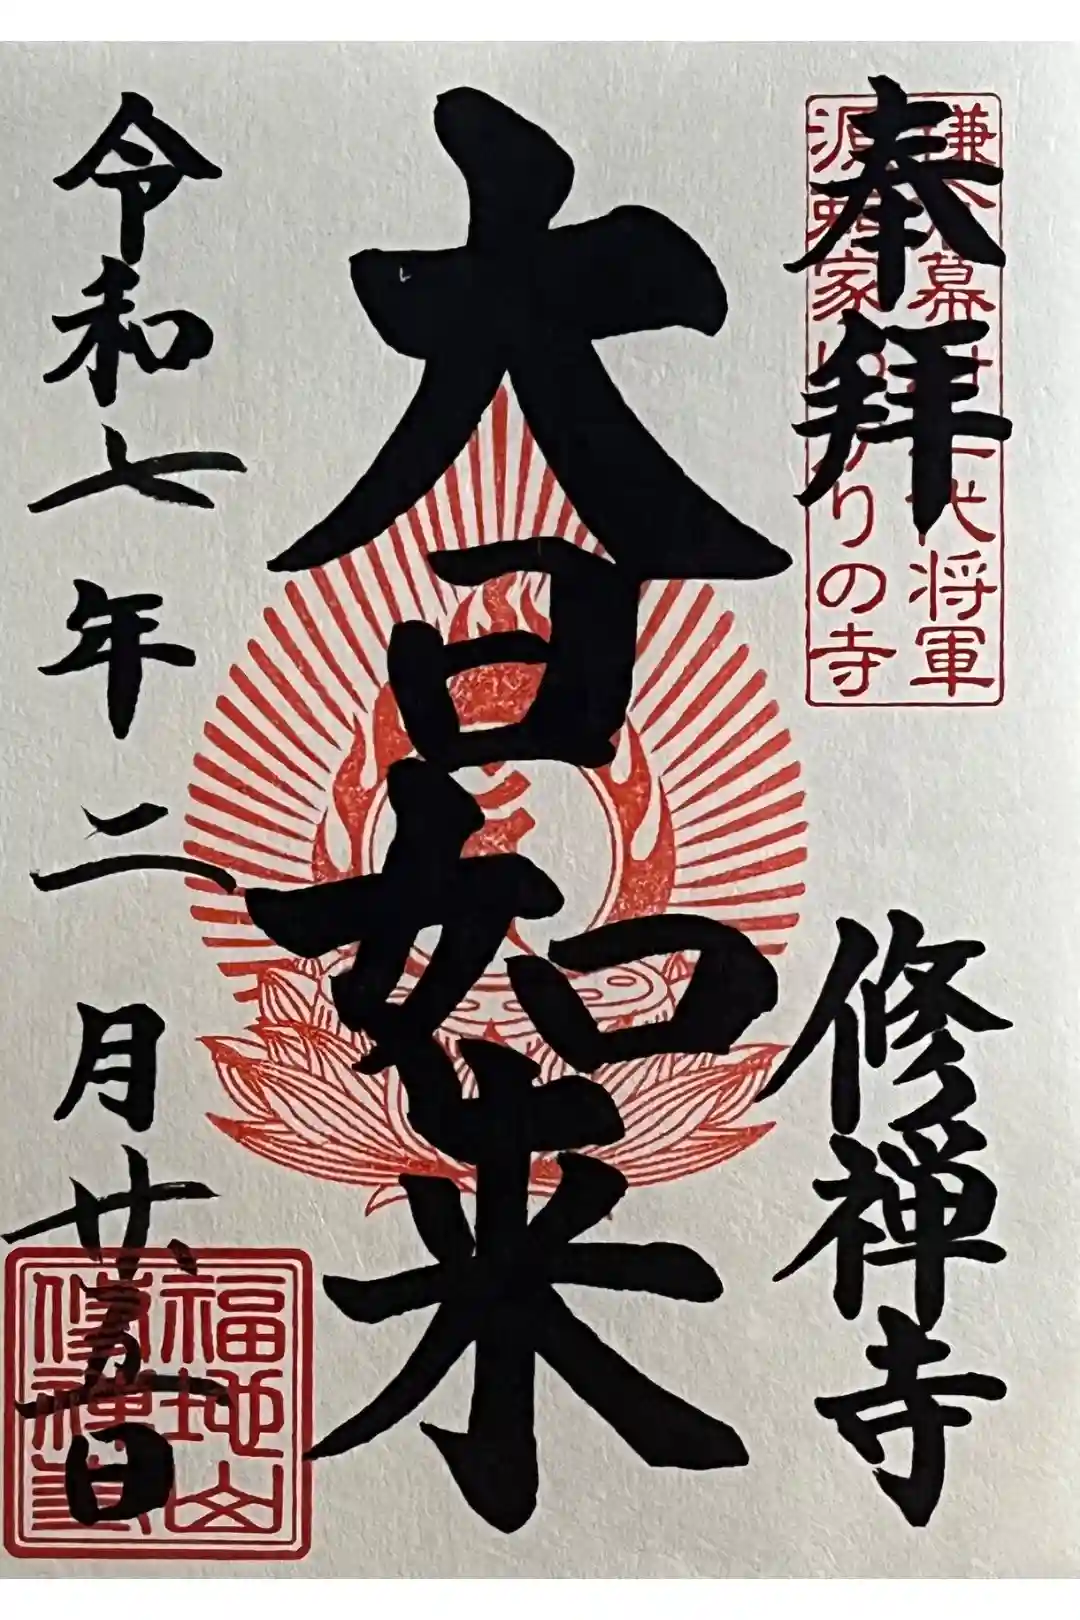 奉拝
鎌倉幕府二代将軍
源頼家ゆかりの寺
修禅寺
大日如来
令和七年二月廿五日
福地山
修禅寺